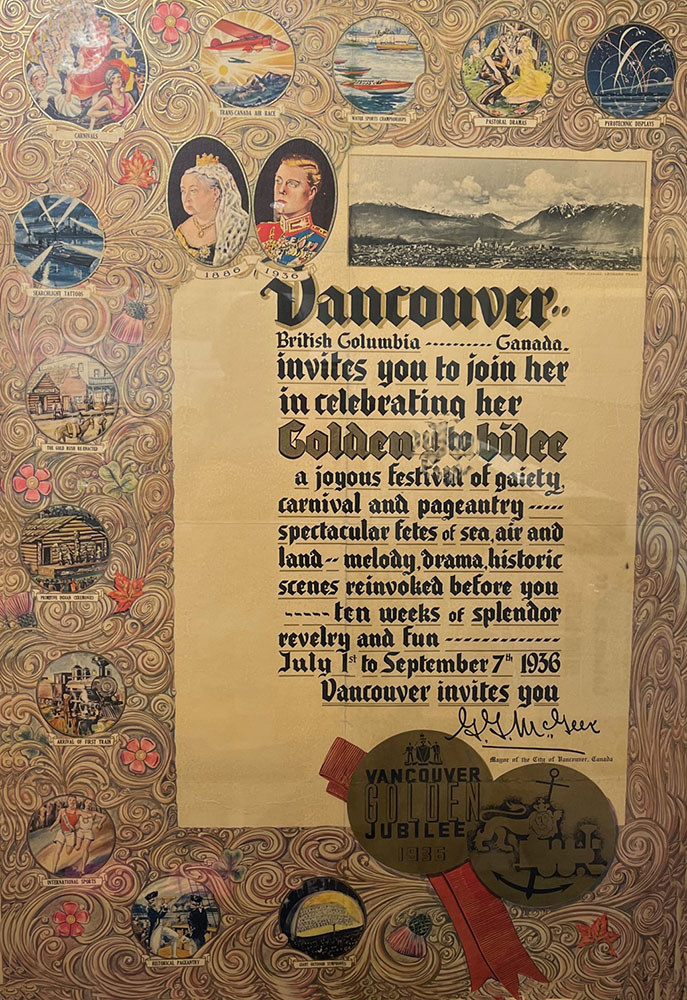 CARNIVALS
TRANS-CANADA AIR RACE
WATER SPORTS CHAMPIONSHIPS
PASTORAL DRAMAS
PYROTECHNIC DISPLAYS
SEARCHLIGHT TATTOOS
1886 1936
Vancouver--
British Columbia ---------- Canada.
invites you to join her
in celebrating her
Golden Jubilee
a joyous festival of gaiety,
carnival and pageantry -----
spectacular fetes of sea, air and
land -- melody, drama, historic
scenes reinvoked before you
----- ten weeks of splendor
revelry and fun -------------
July 1st to September 7th 1936
Vancouver invites you
G. G. McGeer
Mayor of the City of Vancouver, Canada
THE GOLD RUSH RE-ENACTED
PRIMITIVE INDIAN CEREMONIES
ARRIVAL OF FIRST TRAIN
INTERNATIONAL SPORTS
HISTORICAL PAGEANTRY
GIANT OUTDOOR SYMPHONIES
VANCOUVER
GOLDEN
JUBILEE
1936